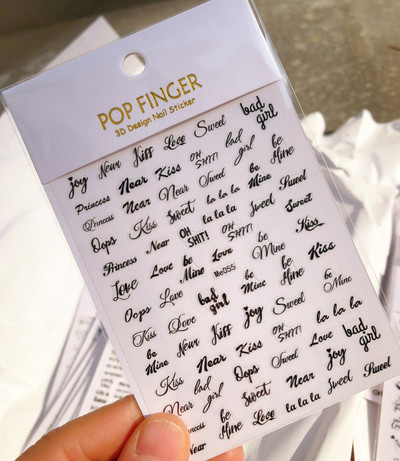 POP FINGER
3D Design Nail Sticker
joy Near Kiss Love Sweet bad girl
Princess Near Kiss OH SHIT! bad girl be Mine
Princess Near Near Sweet la la la be Mine Sweet
Oops Kiss Sweet la la la Sweet Sweet
Princess Near OH SHIT! OH SHIT! Kiss
Love Love be Mine Love No055 be Mine Kiss
Oops Love bad girl be Mine be Mine be Mine
Kiss Love Kiss joy Sweet la la la
be Mine Near Near Kiss OH SHIT! Love bad girl
Kiss bad girl Oops Sweet joy
Near Princess be Mine Sweet Near Sweet Sweet
Near Love la la la